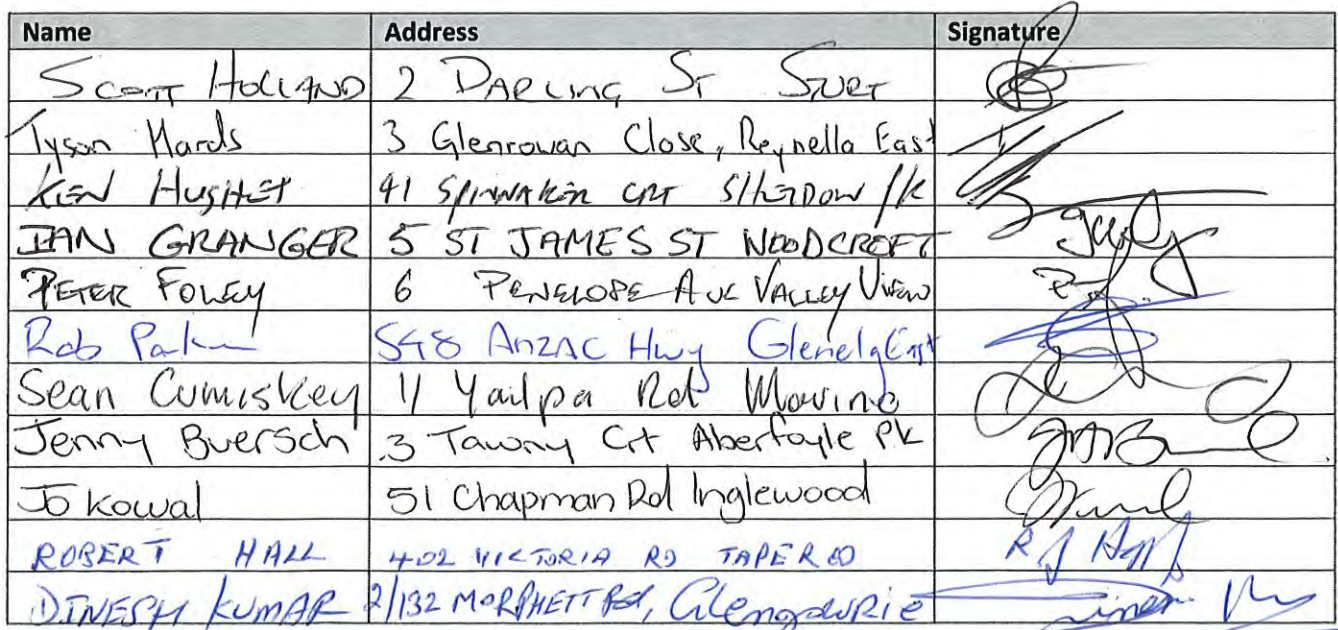 Name Address Signature
Scott Holland 2 Darling St Sturt
Tyson Hards 3 Glenrowan Close, Reynella East
KEN HUGHES 41 SPINNAKER CRT SHEIDOW PK
IAN GRANGER 5 ST JAMES ST WOODCROFT
PETER FOLEY 6 PENELOPE AVE VALLEY VIEW
Rob 548 ANZAC Hwy Glenelg East
Sean Cumiskey 11 Yailpa Rd Marino
Jenny Buersch 3 Tawny Crt Aberfoyle Pk
Jo Kowal 51 Chapman Rd Inglewood
ROBERT HALL 402 VICTORIA RD TAPEROO
DINESH KUMAR 2/132 MORPHETT Rd, Glengowrie